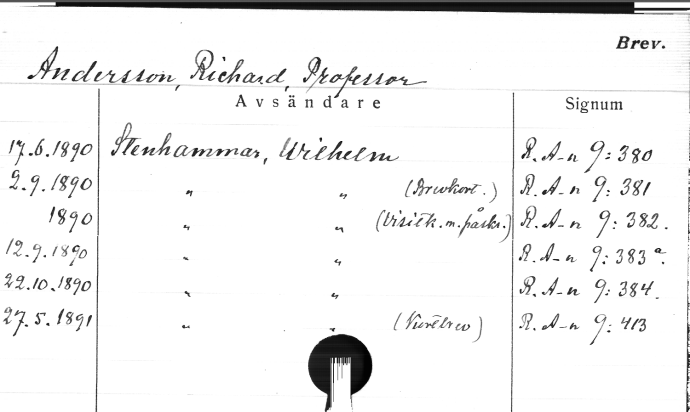 Brev.
Andersson, Richard, Professor
Avsändare Signum
17.6.1890 Stenhammar, Wilhelm R. A-n 9:380
2.9.1890 " " (Brevkort.) R. A-n 9:381
1890 " " (Visitk. m. påskr.) R. A-n 9:382.
12.9.1890 " " R. A-n 9:383 a.
22.10.1890 " " R. A-n 9:384.
27.5.1891 " " R. A-n 9:413